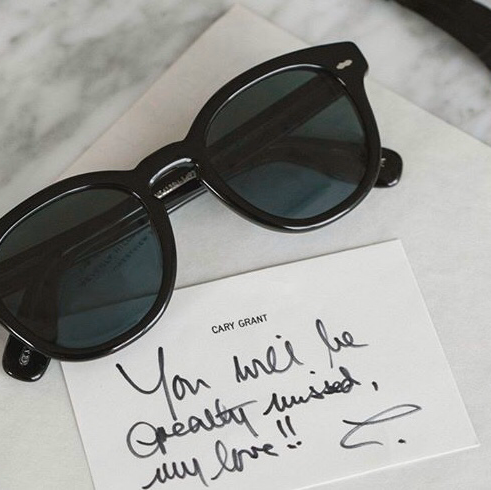 CARY GRANT
You will be
greatly missed,
my love!! C.